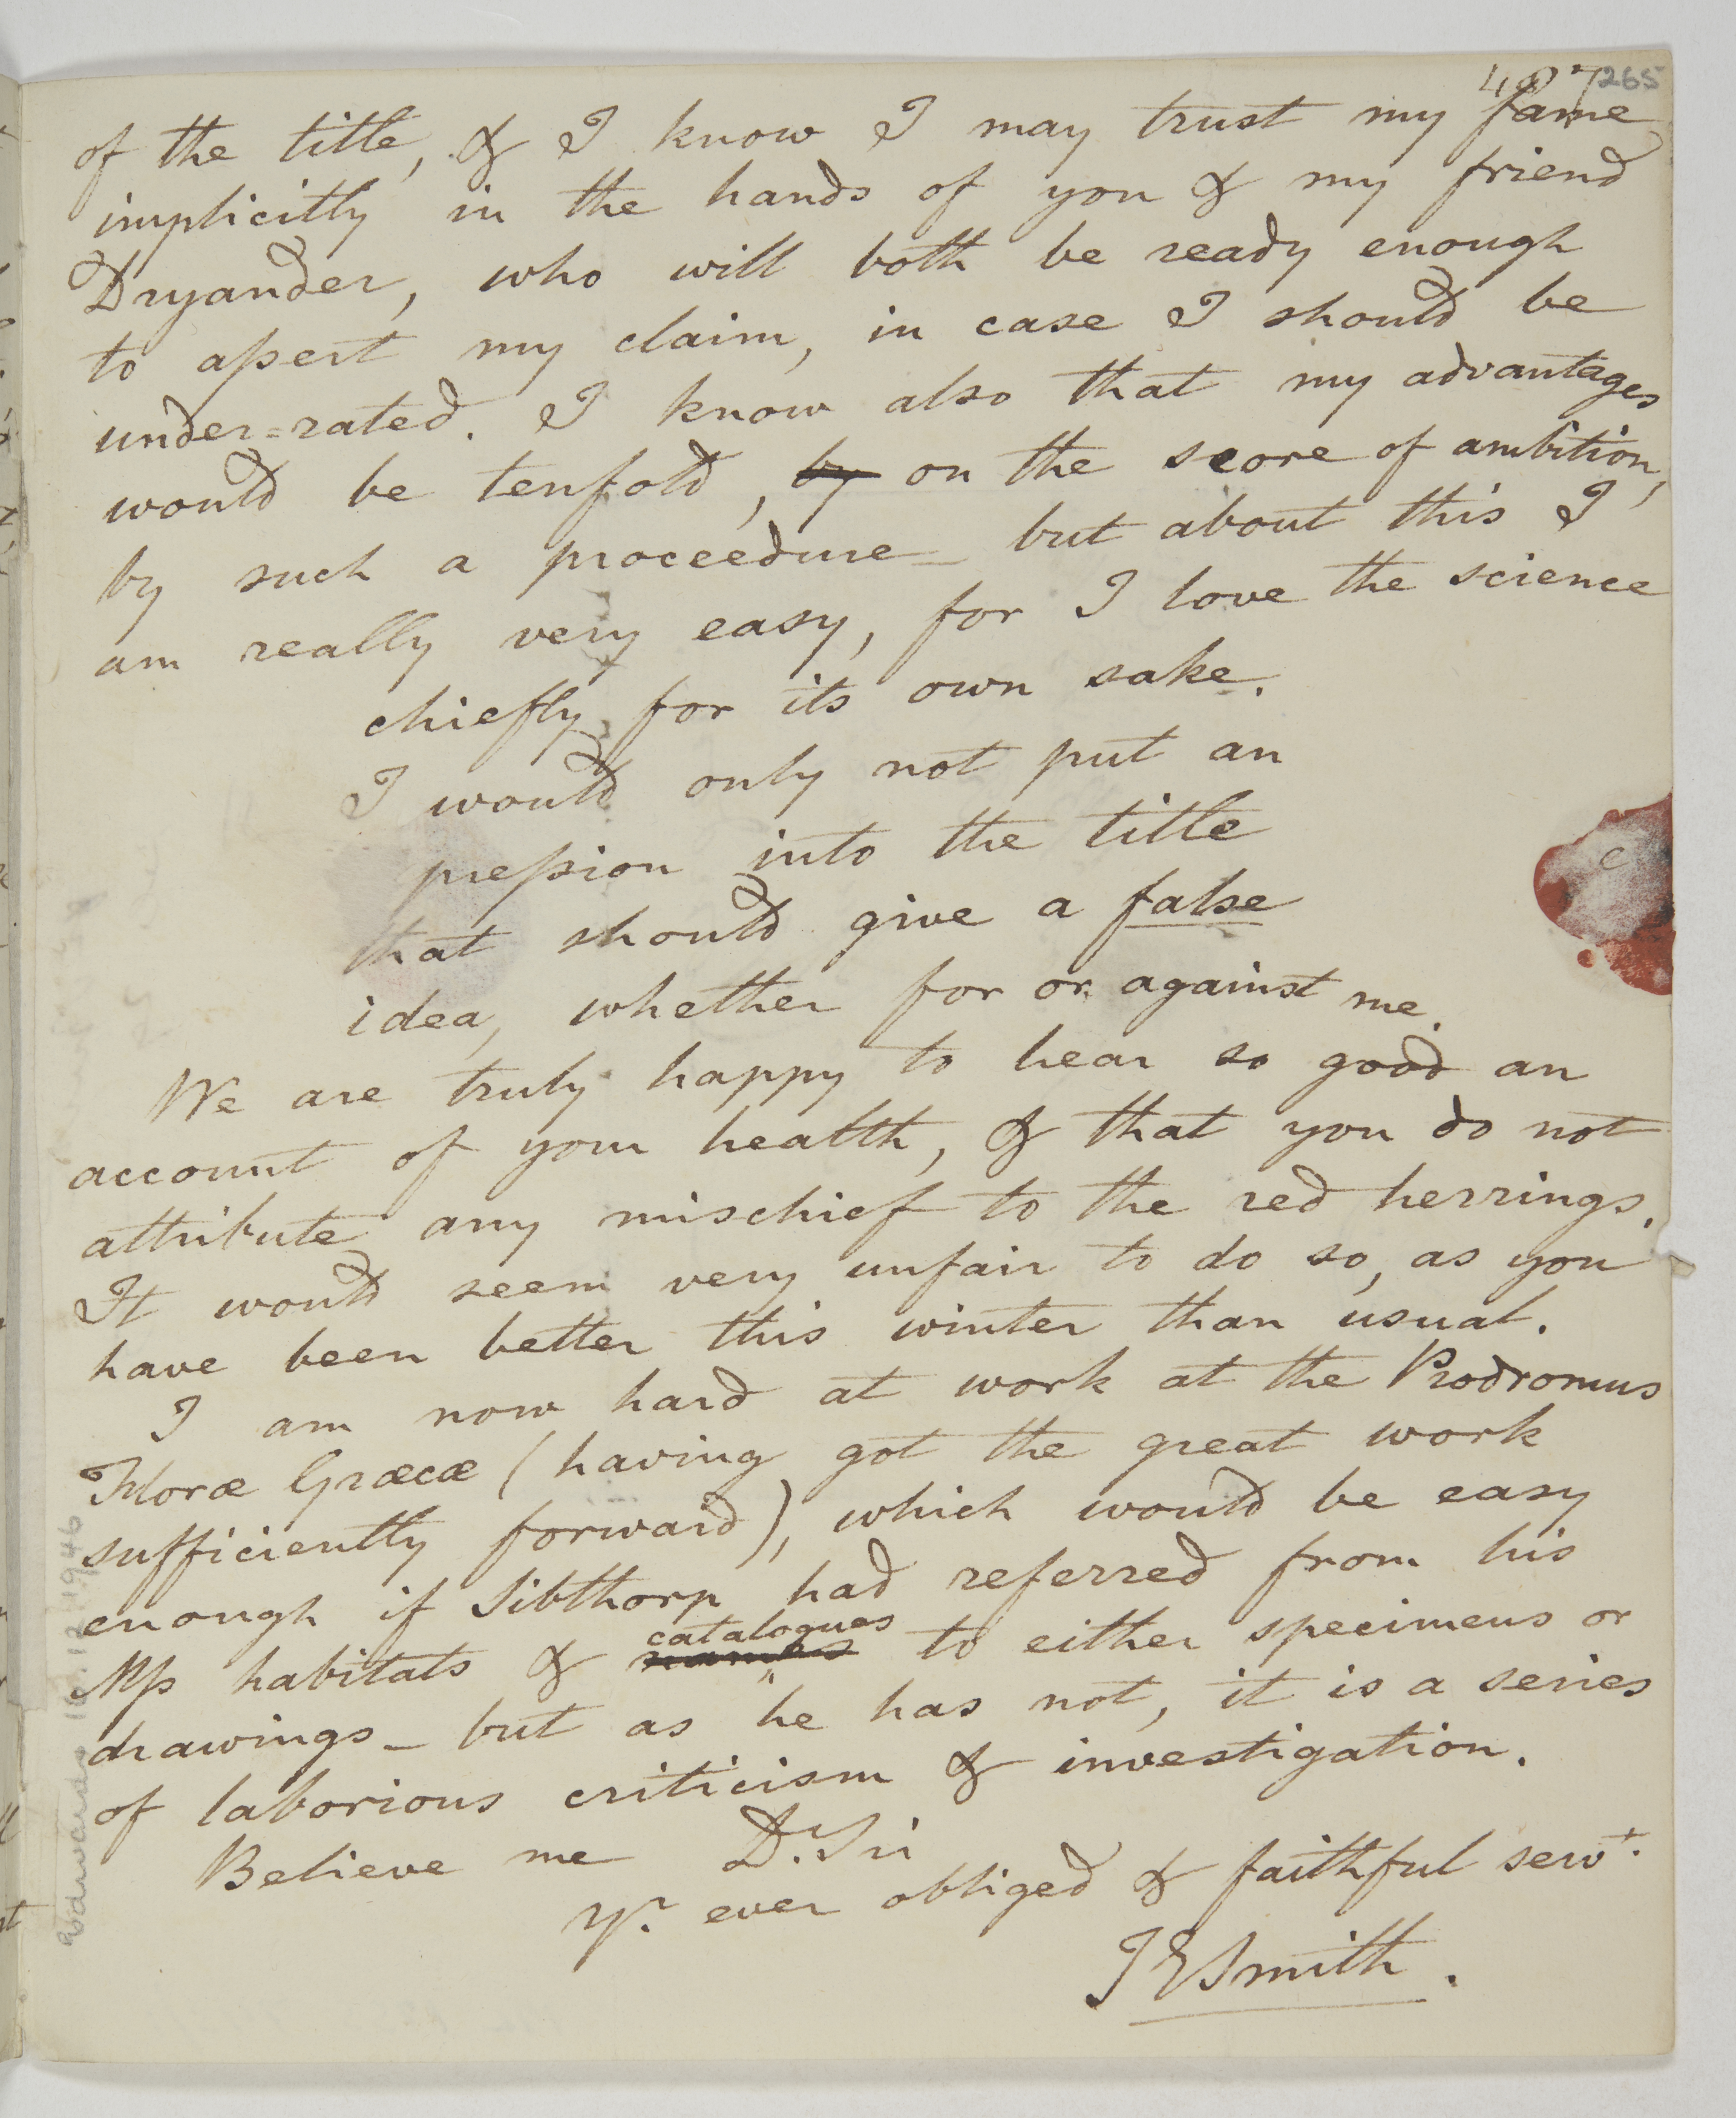 265
of the title, & I know I may trust my fame
implicitly in the hands of you & my friend
Dryander, who will both be ready enough
to aſsert my claim, in case I should be
under=rated. I know also that my advantages
would be tenfold, by on the score of ambition,
by such a proceedure - but about this I
am really very easy, for I love the science
chiefly for its own sake.
I would only not put an
preſsion into the title
that should give a false
idea, whether for or against me.
We are truly happy to hear so good an
account of your health, & that you do not
attribute any mischief to the red herrings.
It would seem very unfair to do so, as you
have been better this winter than usual.
I am now hard at work at the Prodromus
Floræ Græcæ (having got the great work
sufficiently forward), which would be easy
enough if Sibthorp had referred from his
catalogues
Mſs habitats & names to either specimens or
drawings - but as he has not, it is a series
of laborious criticism & investigation.
Believe me D. Sir
yr. ever obliged & faithful servt.
JESmith.
Edwards 10.12.1946